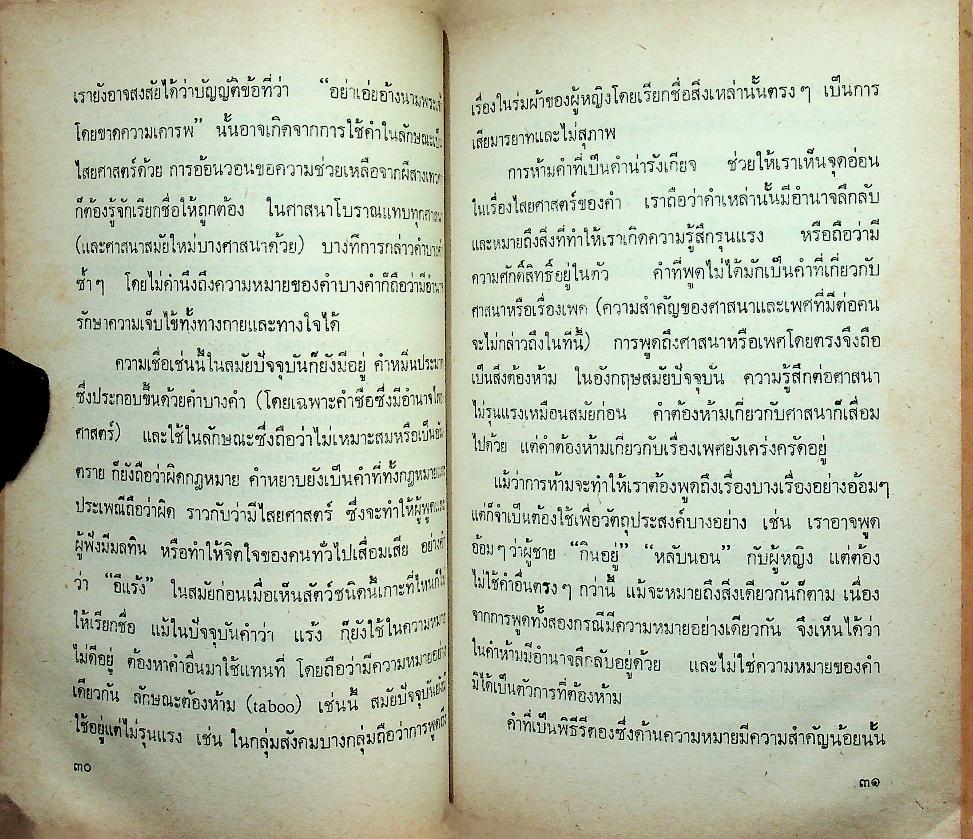 เรายังอาจสงสัยได้ว่าบัญญัติข้อที่ว่า “อย่าเอ่ยอ้างนามพระเจ้า
โดยขาดความเคารพ” นั้นอาจเกิดจากการใช้คำในลักษณะเป็น
ไสยศาสตร์ด้วย การอ้อนวอนขอความช่วยเหลือจากผีสางเทวดา
ก็ต้องรู้จักเรียกชื่อให้ถูกต้อง ในศาสนาโบราณแทบทุกศาสนา
(และศาสนาสมัยใหม่บางศาสนาด้วย) บางทีการกล่าวคำบางคำ
ซ้ำๆ โดยไม่คำนึงถึงความหมายของคำบางคำก็ถือว่ามีอำนาจ
รักษาความเจ็บไข้ทั้งทางกายและทางใจได้
ความเชื่อเช่นนี้ในสมัยปัจจุบันก็ยังมีอยู่ คำหมิ่นประมาท
ซึ่งประกอบขึ้นด้วยคำบางคำ (โดยเฉพาะคำชื่อซึ่งมีอำนาจไสย
ศาสตร์) และใช้ในลักษณะซึ่งถือว่าไม่เหมาะสมหรือเป็นอัน
ตราย ก็ยังถือว่าผิดกฎหมาย คำหยาบยังเป็นคำที่ทั้งกฎหมายและ
ประเพณีถือว่าผิด ราวกับว่ามีไสยศาสตร์ ซึ่งจะทำให้ผู้พูดและ
ผู้ฟังมีมลทิน หรือทำให้จิตใจของคนทั่วไปเสื่อมเสีย อย่างคำ
ว่า “อีแร้ง” ในสมัยก่อนเมื่อเห็นสัตว์ชนิดนี้เกาะที่ไหนก็ไม่
ให้เรียกชื่อ แม้ในปัจจุบันคำว่า แร้ง ก็ยังใช้ในความหมาย
ไม่ดีอยู่ ต้องหาคำอื่นมาใช้แทนที่ โดยถือว่ามีความหมายอย่าง
เดียวกัน ลักษณะต้องห้าม (taboo) เช่นนี้ สมัยปัจจุบันยัง
ใช้อยู่แต่ไม่รุนแรง เช่น ในกลุ่มสังคมบางกลุ่มถือว่าการพูดถึง
๓๐
เรื่องในร่มผ้าของผู้หญิงโดยเรียกชื่อสิ่งเหล่านั้นตรงๆ เป็นการ
เสียมารยาทและไม่สุภาพ
การห้ามคำที่เป็นคำน่ารังเกียจ ช่วยให้เราเห็นจุดอ่อน
ในเรื่องไสยศาสตร์ของคำ เราถือว่าคำเหล่านั้นมีอำนาจลึกลับ
และหมายถึงสิ่งที่ทำให้เราเกิดความรู้สึกรุนแรง หรือถือว่ามี
ความศักดิ์สิทธิ์อยู่ในตัว คำที่พูดไม่ได้มักเป็นคำที่เกี่ยวกับ
ศาสนาหรือเรื่องเพศ (ความสำคัญของศาสนาและเพศที่มีต่อคน
จะไม่กล่าวถึงในที่นี้) การพูดถึงศาสนาหรือเพศโดยตรงจึงถือ
เป็นสิ่งต้องห้าม ในอังกฤษสมัยปัจจุบัน ความรู้สึกต่อศาสนา
ไม่รุนแรงเหมือนสมัยก่อน คำต้องห้ามเกี่ยวกับศาสนาก็เสื่อม
ไปด้วย แต่คำต้องห้ามเกี่ยวกับเรื่องเพศยังเคร่งครัดอยู่
แม้ว่าการห้ามจะทำให้เราต้องพูดถึงเรื่องบางเรื่องอย่างอ้อมๆ
แต่ก็จำเป็นต้องใช้เพื่อวัตถุประสงค์บางอย่าง เช่น เราอาจพูด
อ้อมๆ ว่าผู้ชาย “กินอยู่” “หลับนอน” กับผู้หญิง แต่ต้อง
ไม่ใช้คำอื่นตรงๆ กว่านี้ แม้จะหมายถึงสิ่งเดียวกันก็ตาม เนื่อง
จากการพูดทั้งสองกรณีมีความหมายอย่างเดียวกัน จึงเห็นได้ว่า
ในคำห้ามมีอำนาจลึกลับอยู่ด้วย และไม่ใช่ความหมายของคำ
มิได้เป็นตัวการที่ต้องห้าม
คำที่เป็นพิธีรีตองซึ่งด้านความหมายมีความสำคัญน้อยนั้น
๓๑